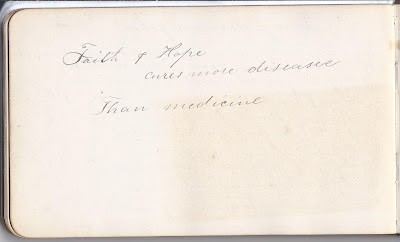 Faith & Hope
cures more diseases
Than medicine